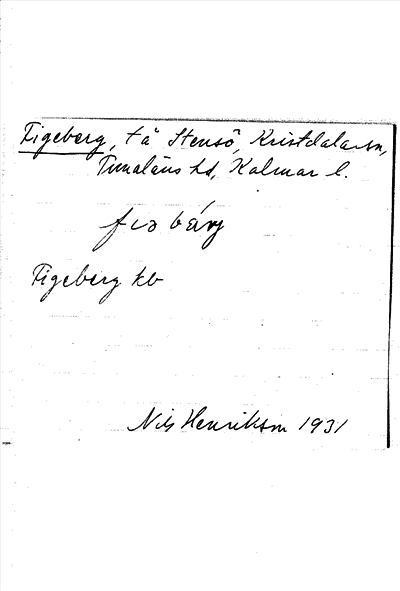 Figeberg, t å Stensö, Kristdala sn,
Tunaläns hd, Kalmar l.
Figeberg kb
Nils Henrikson 1931